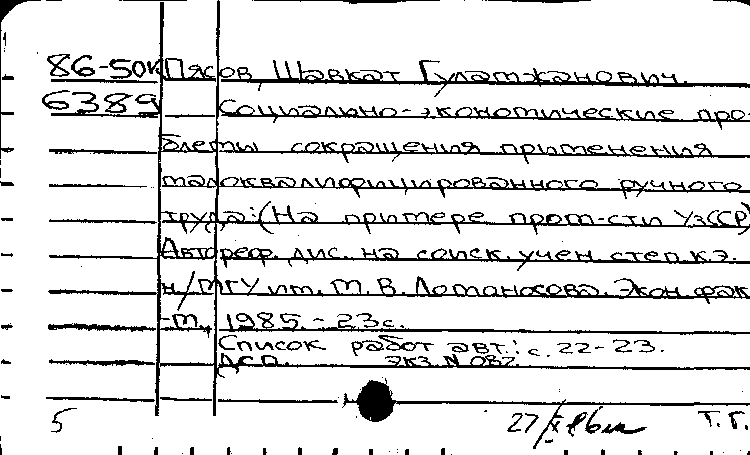 86-50к Пясов, Шавкат Гулатжанович.
6389 Социально-экономические про-
блемы сокращения применения
малоквалифицированного ручного
труда: (На примере пром-сти УзССР)
Автореф. дис. на соиск. учен. степ. к.э.
н/МГУ им. М. В. Ломоносова. Экон. фак
-т., 1985. - 23с.
Список работ авт.: с. 22-23.
ДСП. экз. N 087.
5 27/X 86 Т. Г.